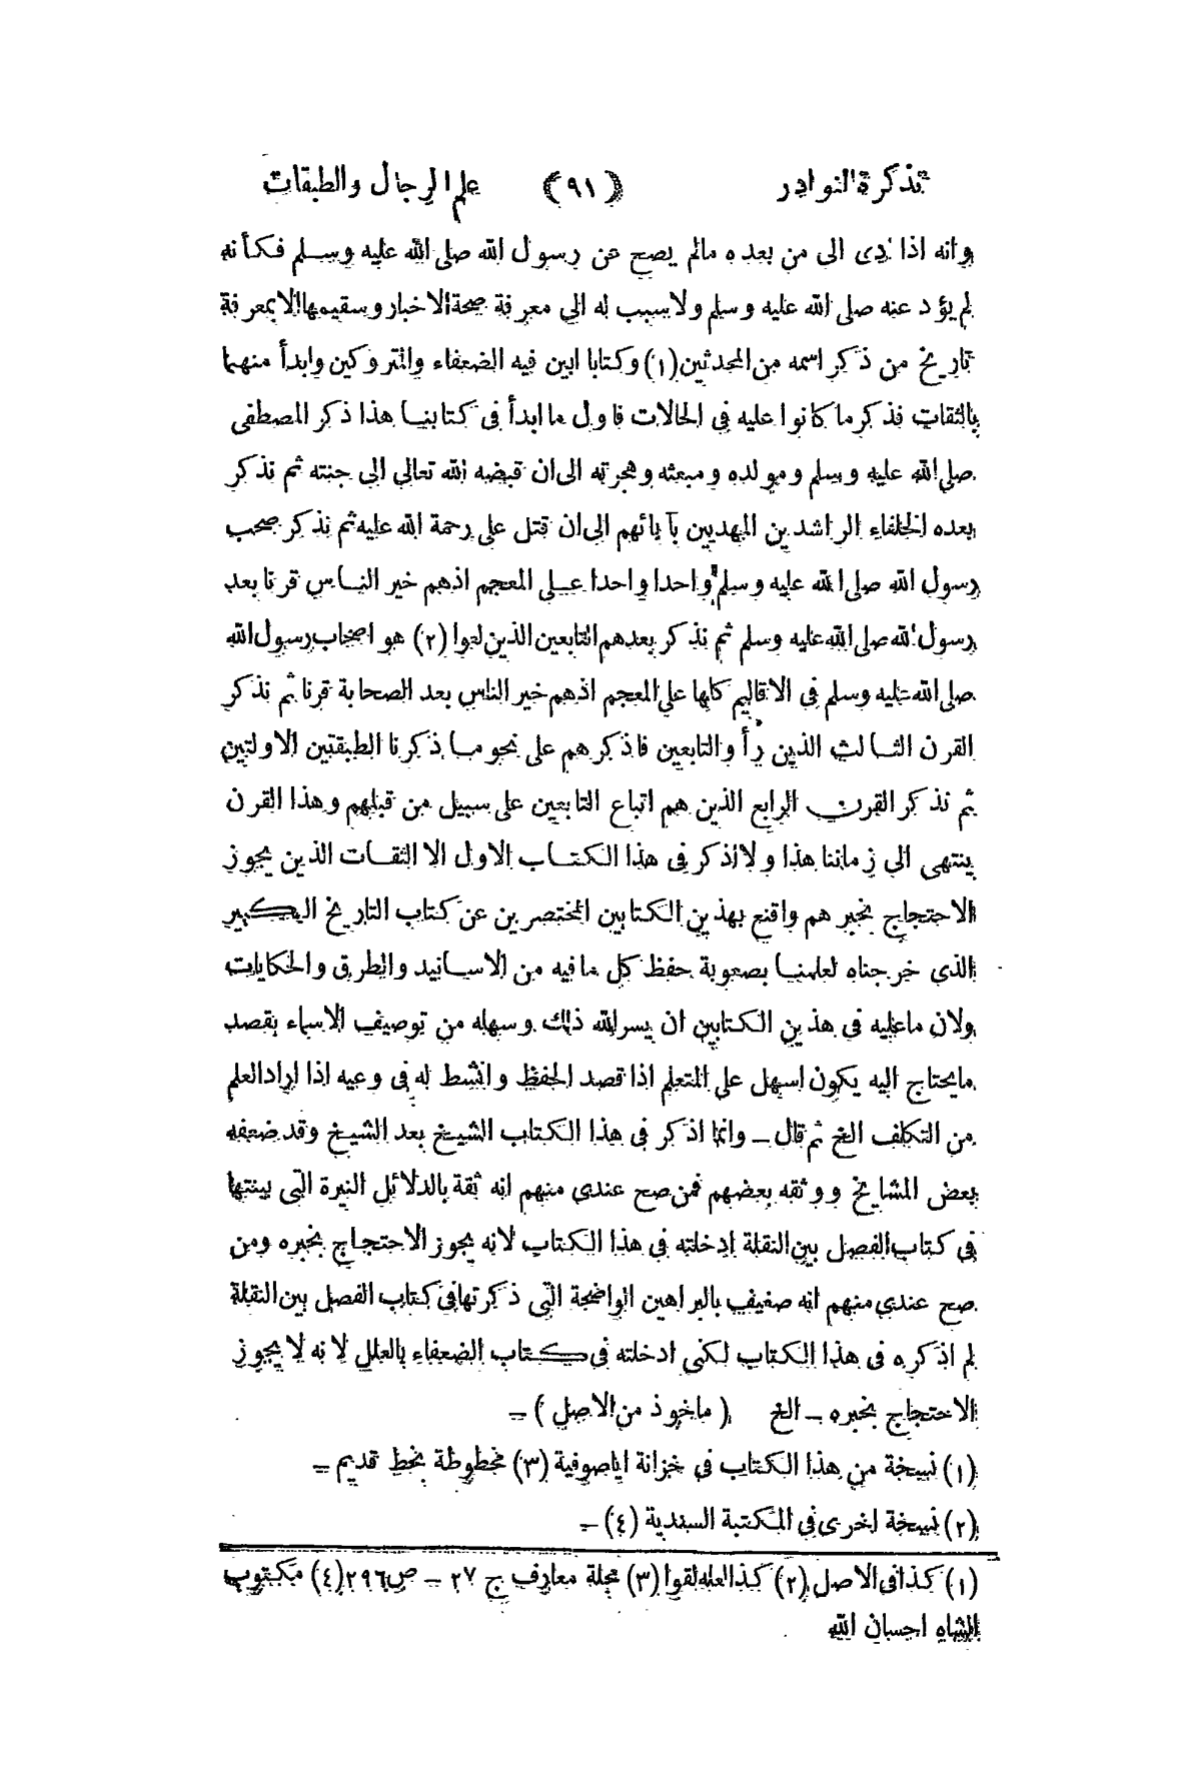 تذكرة النوادر (٩١) علم الرجال والطبقات
وانه اذا ادى الى من بعده مالم يصح عن رسول الله صلى الله عليه وسلم فكأنه
لم يؤد عنه صلى الله عليه وسلم ولا سبب له الى معرفة صحة الاخبار وسقيمها الا بمعرفة
تاريخ من ذكر اسمه من المحدثين (١) وكتابا ابين فيه الضعفاء والمتروكين وابدأ منهما
بالثقات فنذكر ما كانوا عليه فى الحالات فاول ما ابدأ فى كتابنا هذا ذكر المصطفى
صلى الله عليه وسلم ومولده ومبعثه وهجرته الى ان قبضه الله تعالى الى جنته ثم نذكر
بعده الخلفاء الراشدين المهديين بآبائهم الى ان قتل على رحمة الله عليه ثم نذكر صحب
رسول الله صلى الله عليه وسلم واحدا واحدا على المعجم اذهم خير الناس قرنا بعد
رسول الله صلى الله عليه وسلم ثم نذكر بعدهم التابعين الذين لعوا (٢) هو اصحاب رسول الله
صلى الله عليه وسلم فى الاقاليم كلها على المعجم اذهم خير الناس بعد الصحابة قرنا ثم نذكر
القرن الثالث الذين رأ والتابعين فاذكرهم على نحو ما ذكرنا الطبقتين الاولتين
ثم نذكر القرن الرابع الذين هم اتباع التابعين على سبيل من قبلهم وهذا القرن
ينتهى الى زماننا هذا ولا اذكر فى هذا الكتاب الاول الا الثقات الذين يجوز
الاحتجاج بخبرهم واقنع بهذين الكتابين المختصرين عن كتاب التاريخ الكبير
الذى خرجناه لعلمنا بصعوبة حفظ كل ما فيه من الاسانيد والطرق والحكايات
ولان ما عليه فى هذين الكتابين ان يسر الله ذلك وسهله من توصيف الاسماء بقصد
ما يحتاج اليه يكون اسهل على المتعلم اذا قصد الحفظ وانشط له فى وعيه اذا اراد العلم
من التكلف الخ ثم قال ــ وانما اذكر فى هذا الكتاب الشيخ بعد الشيخ وقد ضعفه
بعض المشايخ ووثقه بعضهم فمن صح عندى منهم انه ثقة بالدلائل النيرة التى بينتها
فى كتاب الفصل بين النقلة ادخلته فى هذا الكتاب لانه يجوز الاحتجاج بخبره ومن
صح عندى منهم انه ضعيف بالبراهين الواضحة التى ذكرتها فى كتاب الفصل بين النقلة
لم اذكره فى هذا الكتاب لكنى ادخلته فى كتاب الضعفاء بالعلل لانه لا يجوز
الاحتجاج بخبره ــ الخ (ماخوذ من الاصل) ــ
(١) نسخة من هذا الكتاب فى خزانة اياصوفية (٣) مخطوطة بخط قديم ــ
(٢) نسخة اخرى فى المكتبة السندية (٤) ــ
(١) كذا فى الاصل (٢) كذا لعله لقوا (٣) مجلة معارف ج ٢٧ ــ ص ٢٩٦ (٤) مكتوب
الشاه احسان الله